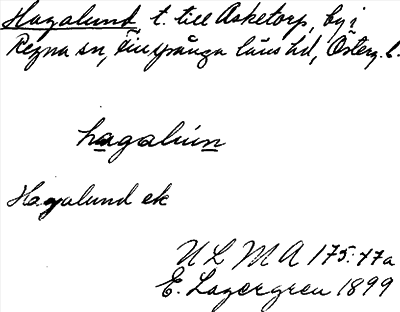 Hagalund t. till Asketorp, by i
Regna sn, Finspånga läns hd, Österg. l.
hagalún
Hagalund ek
ULMA 175:47a
E. Lagergren 1899